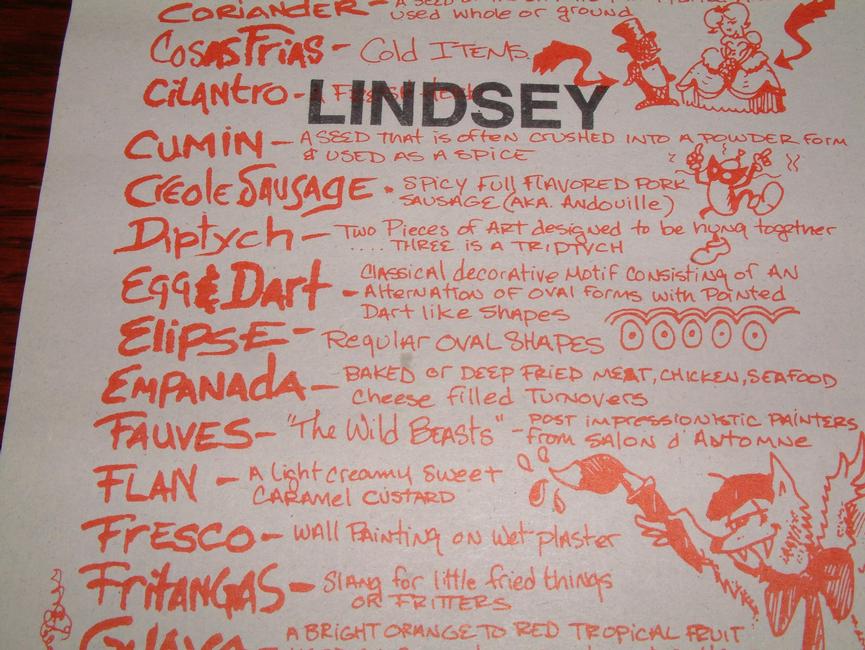 CORIANDER -
used whole or ground
COSAS FRIAS - Cold ITEMS
CILANTRO -
LINDSEY
CUMIN - A SEED THAT is often CRUSHED INTO A POWDER FORM
& USED AS A SPICE
CREOLE SAUSAGE - SPICY FULL FLAVORED PORK
SAUSAGE (AKA. Andouille)
Diptych - Two Pieces of ART designed to be hung together
.... THREE IS A TRIPTYCH
EGG & DART - CLASSICAL decorative MOTIF CONSISTING OF AN
AlterNATION OF OVAL Forms with Pointed
Dart like Shapes
ELIPSE - Regular OVAL SHAPES
EMPANADA - BAKED or DEEP FRIED MEAT, CHICKEN, SEAFOOD
Cheese filled Turnovers
FAUVES - "The Wild BEASTS" - POST IMPRESSIONISTIC PAINTERS
from SALON d' Antomne
FLAN - A light creamy Sweet
CARAMEL CUSTARD
FRESCO - WALL PAINTING on Wet plaster
FRITANGAS - Slang for little fried things
OR FRITTERS
GUAVA A BRIGHT ORANGE TO RED TROPICAL FRUIT